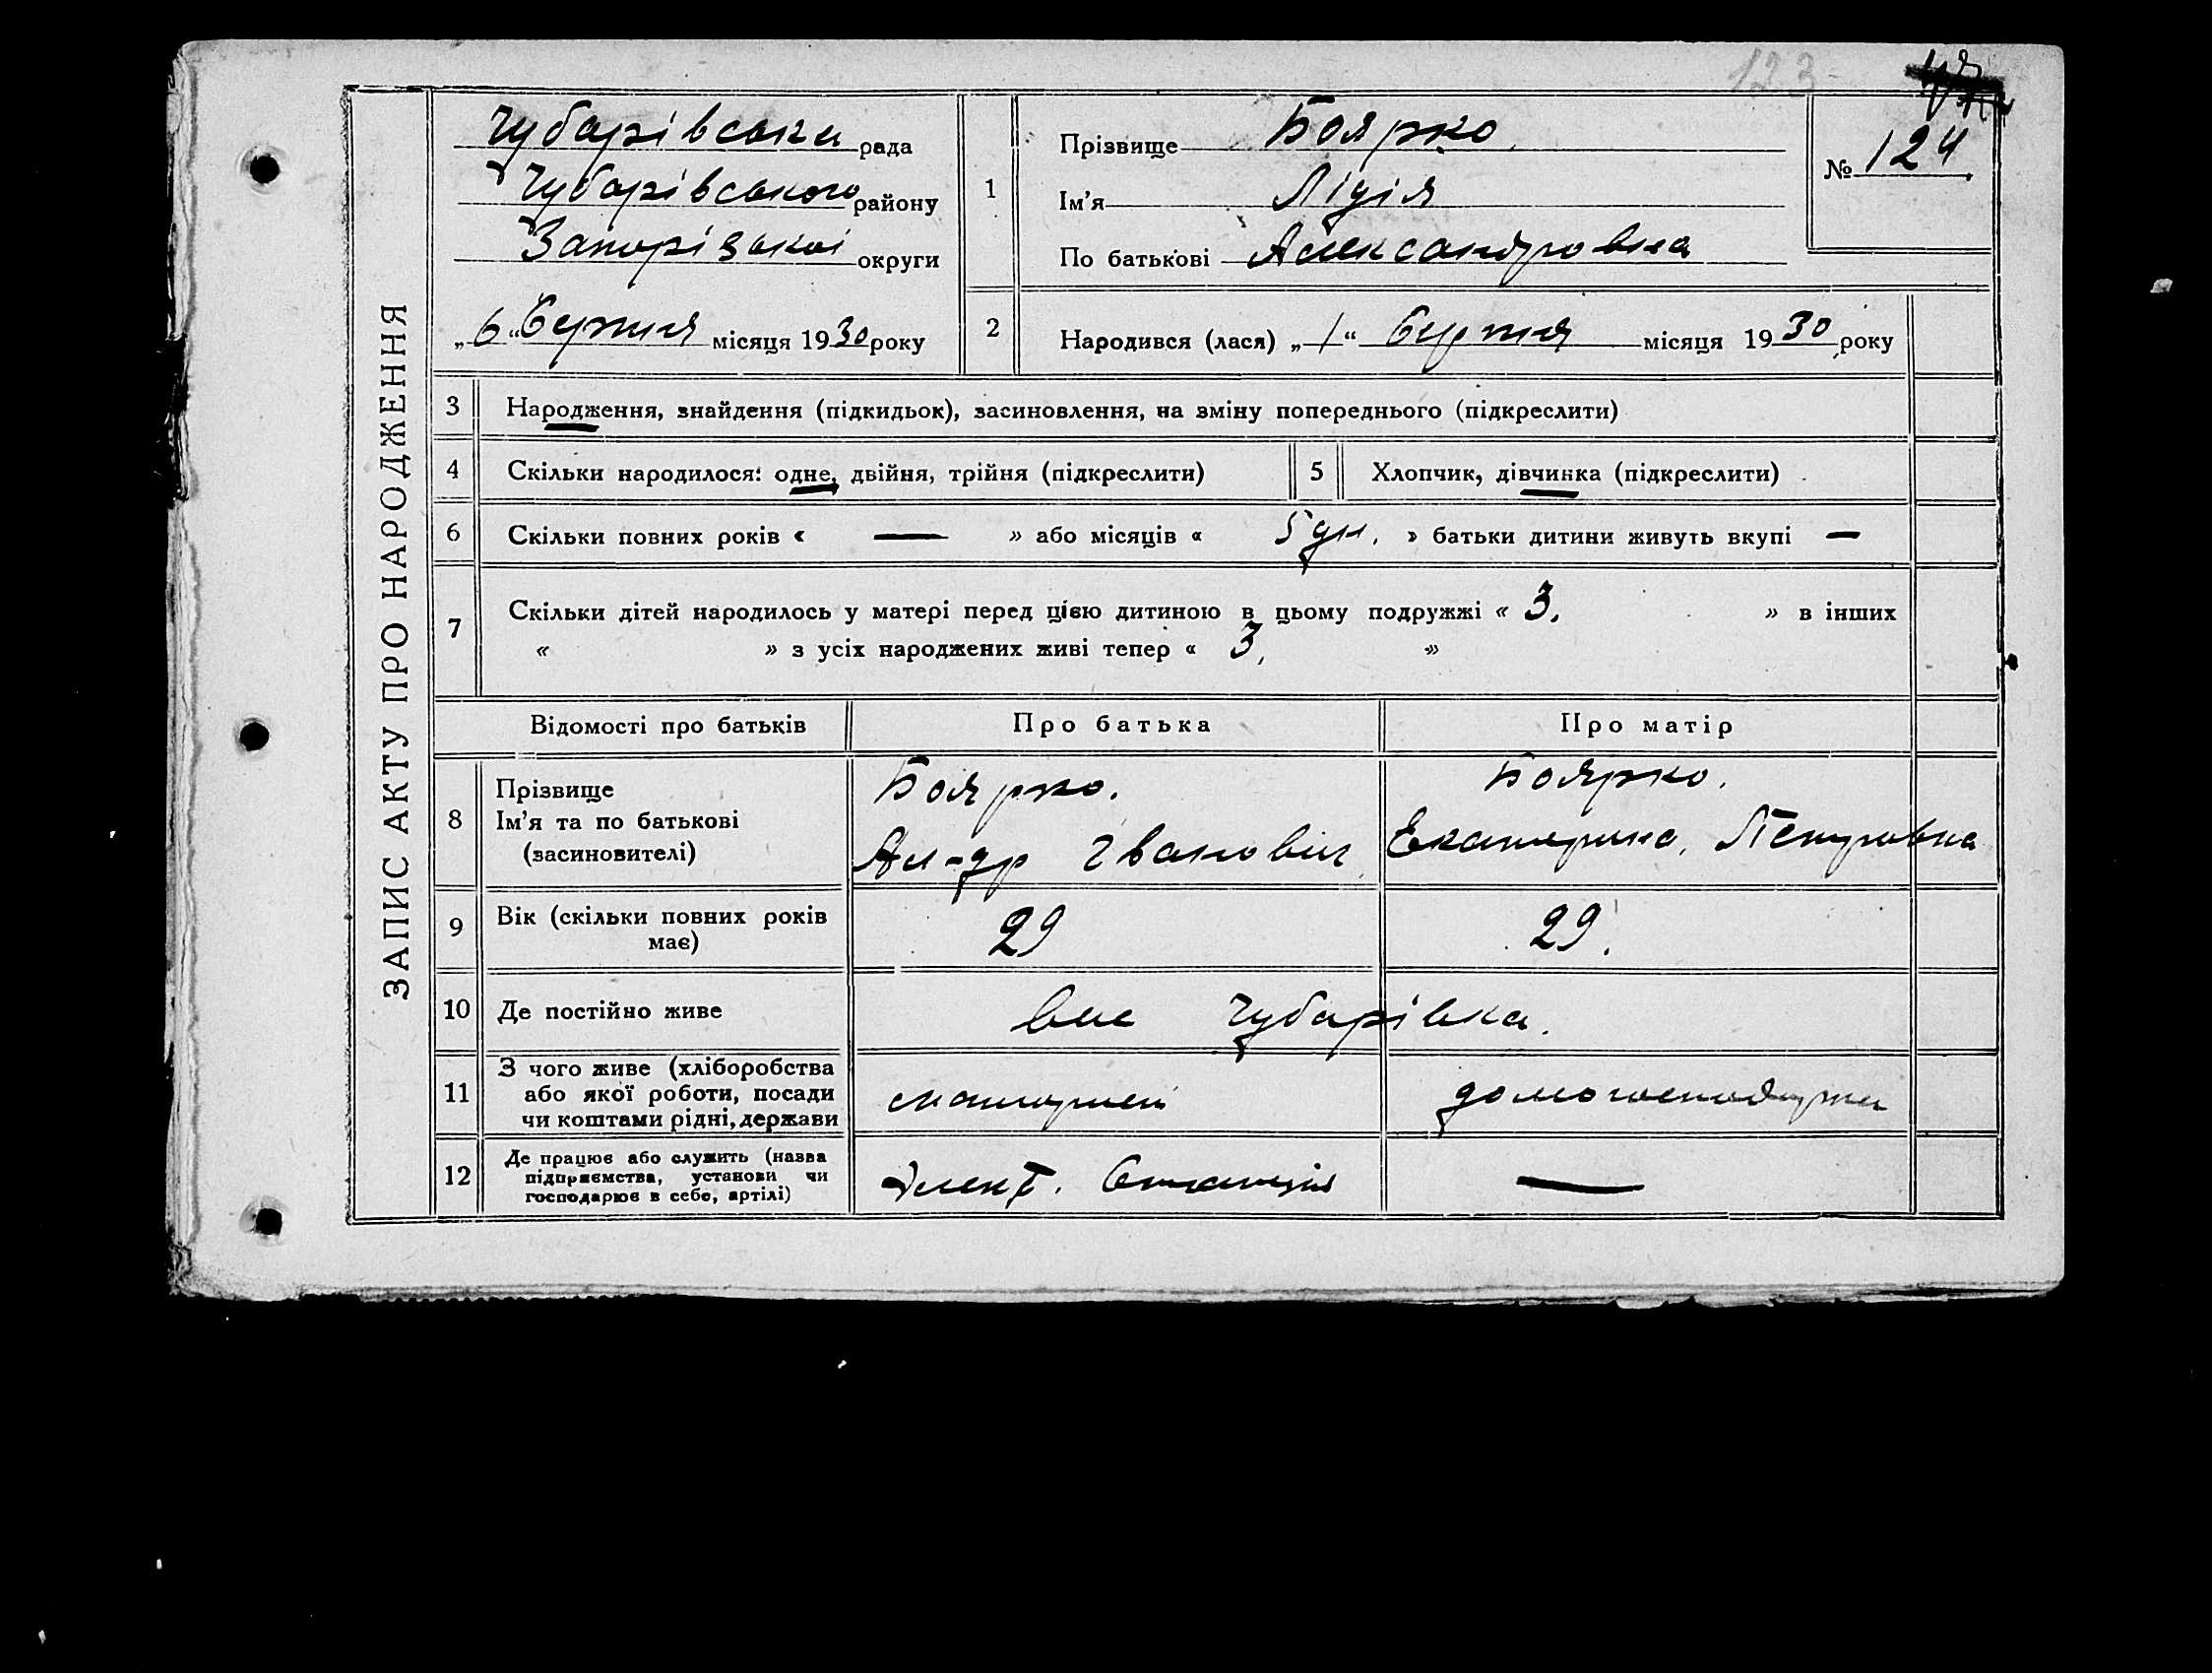 123
ЗАПИС АКТУ ПРО НАРОДЖЕННЯ
Чубарівська рада
Чубарівського району
Запорізької округи
„6“ Серпня місяця 1930 року
1
Прізвище Боярко
Ім'я Лідія
По батькові Александровна
№ 124
2
Народився (лася) „1“ Серпня місяця 1930 року
3 Народження, знайдення (підкидьок), засиновлення, на зміну попереднього (підкреслити)
4 Скільки народилося: одне, двійня, трійня (підкреслити)
5 Хлопчик, дівчинка (підкреслити)
6 Скільки повних років « — » або місяців « 5 дн. » батьки дитини живуть вкупі —
7 Скільки дітей народилось у матері перед цією дитиною в цьому подружжі « 3. » в інших
« » з усіх народжених живі тепер « 3, »
Відомості про батьків Про батька Про матір
8 Прізвище
Ім'я та по батькові
(засиновителі)
Боярко.
Ал-др Іванович
Боярко.
Екатерина, Петровна
9 Вік (скільки повних років
має)
29
29.
10 Де постійно живе
Чубарівка.
11 З чого живе (хліборобства
або якої роботи, посади
чи коштами рідні, держави
домогосподарка
12 Де працює або служить (назва
підприємства, установи чи
господарює в себе, артілі)
Елект. Станція
—